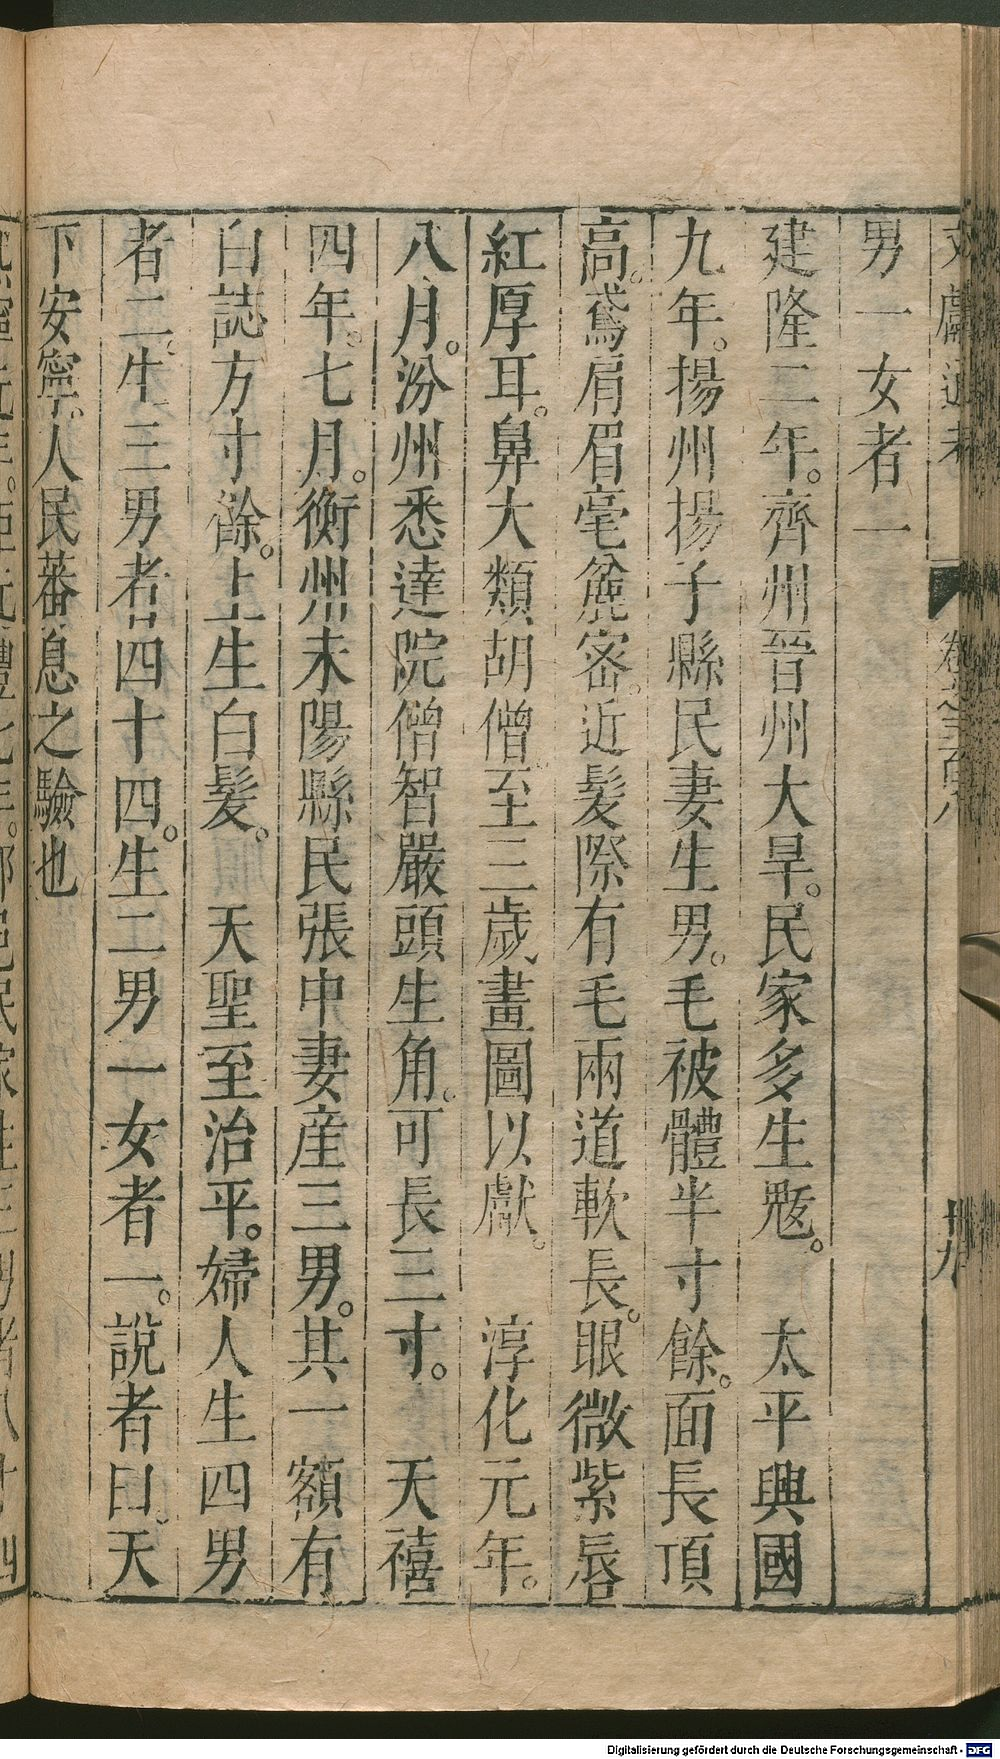 文獻通考 卷之三百八 十九
男一女者一
建隆二年。齊州晉州大旱。民家多生魃。 太平興國
九年。揚州揚子縣民妻生男。毛被體半寸餘。面長頂
高。鳶肩眉毫麄密。近髮際有毛兩道軟長。眼微紫唇
紅厚耳。鼻大類胡僧。至三歲畫圖以獻。 淳化元年。
八月。汾州悉達院僧智嚴頭生角。可長三寸。 天禧
四年。七月。衡州耒陽縣民張中妻産三男。其一額有
白誌方寸餘。上生白髮。 天聖至治平。婦人生四男
者二。生三男者四十四。生二男一女者一。說者曰。天
下安寧。人民蕃息之驗也
Digitalisierung gefördert durch die Deutsche Forschungsgemeinschaft - DFG